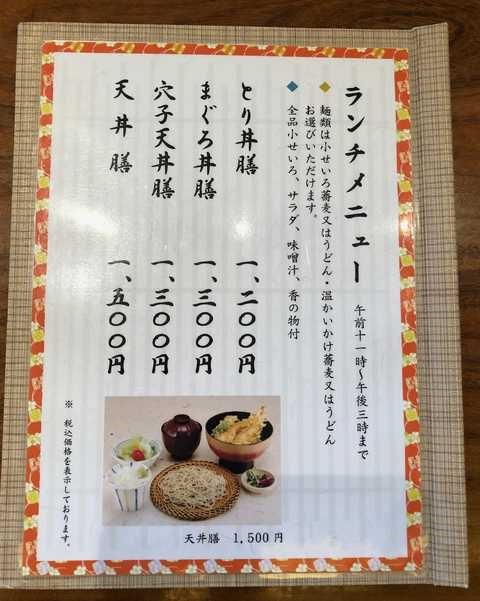 ランチメニュー 午前十一時～午後三時まで
◆麺類は小せいろ蕎麦又はうどん・温かいかけ蕎麦又はうどん
お選びいただけます。
◆全品小せいろ、サラダ、味噌汁、香の物付
とり丼膳 一、二〇〇円
まぐろ丼膳 一、三〇〇円
穴子天丼膳 一、三〇〇円
天丼膳 一、五〇〇円
※ 税込価格を表示しております。
天丼膳 1,500円